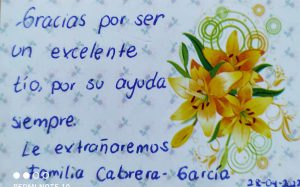 Gracias por ser
un excelente
tío, por su ayuda
siempre.
Le extrañaremos
Familia Cabrera-García
REDMI NOTE 10